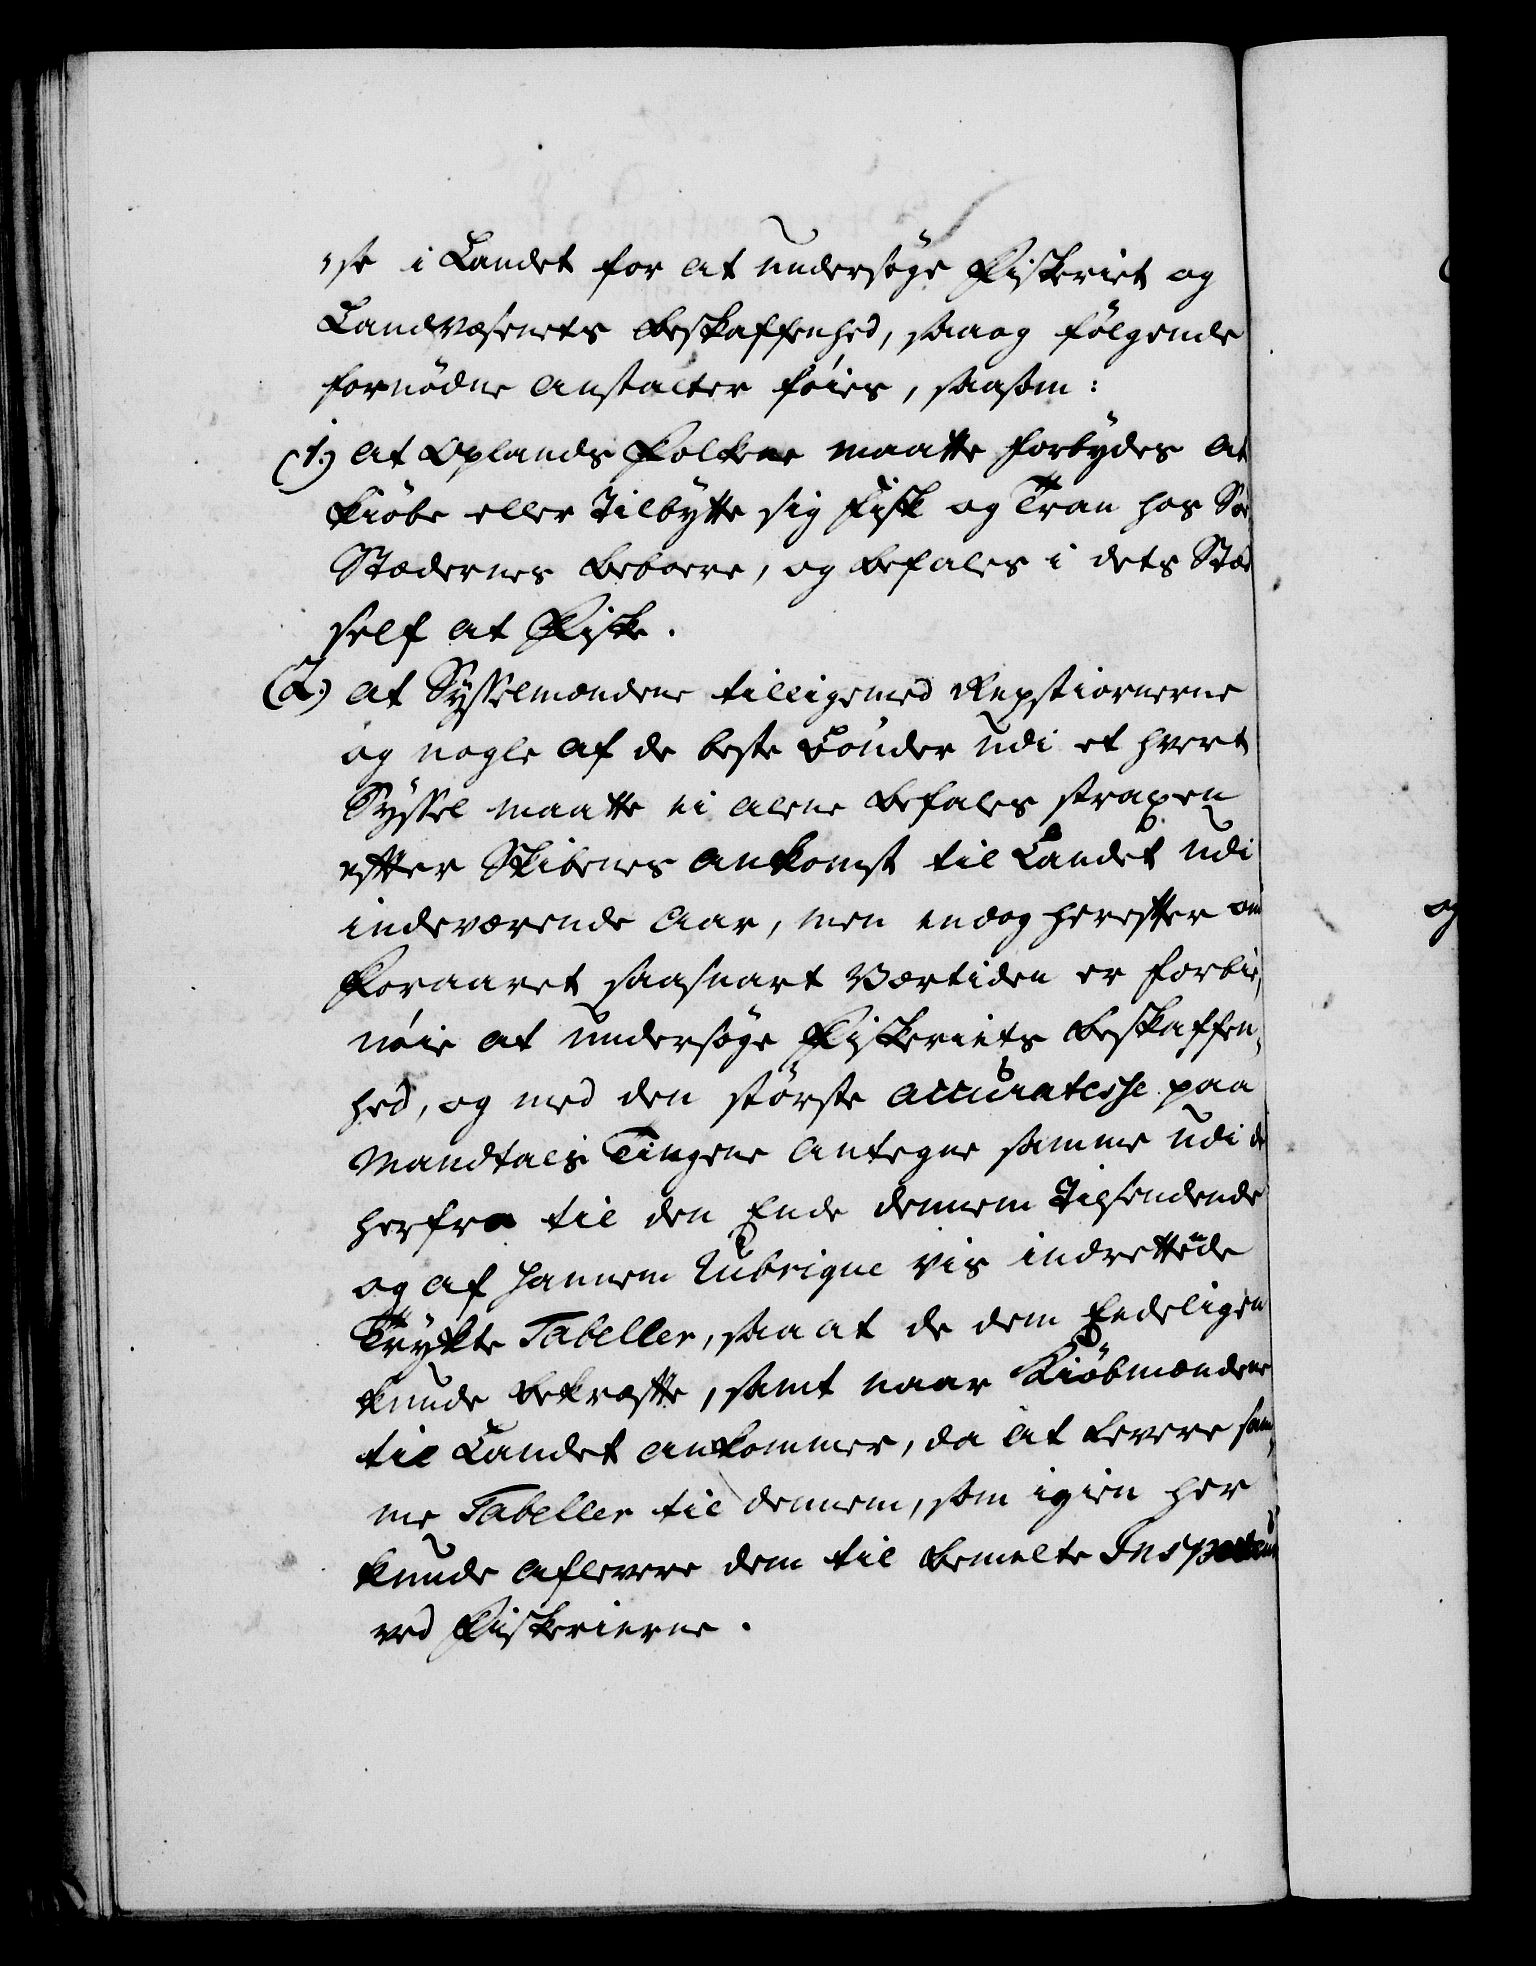 "se i Landet for at undersøge Fiskeriet og
Landvæsenets Beskaffenhed, saa og følgende
fornødne Anstalter føies, saasom:
(1.) At Oplands Folkene maatte forbydes at
Kiøbe eller Tilbytte sig Fisk og Tran hos Søe
Stædernes Beboere, og befales i dets Stæd
self at Fiske.
(2.) At Sysselmændene tilligemed Repstiornerne
og nogle af de beste Bønder udi et hvert
Syssel maatte ei alene befales straxen
efter Skibenes Ankomst til Landet udi
indeværende Aar, men endog herefter om
Foraaret saasnart Værtiden er forbie,
nøie at undersøge Fiskeriets Beskaffen,
hed, og med den største accuratesse paa
Mandtals Tingene antegne samme udi de
herfra til den Ende dennem Tilsendende
og af hannem Rubrique vis indrettede
Trykte Tabeller, saa at de dem Endeligen
kunde bekræfte, samt naar Kiøbmændene
til Landet ankommer, da at levere sam,
me Tabeller til dennem, som igien her
kunde aflevere dem til bemelte Inspecteur
ved Fiskerierne.
og